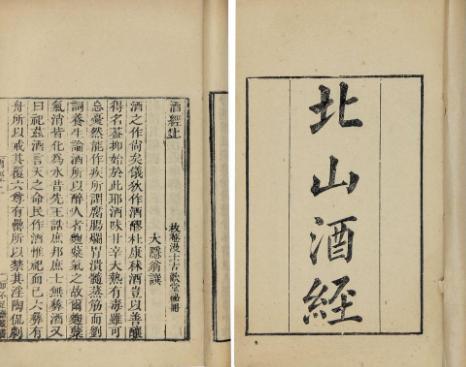 北山酒經
酒經上
枚菴漫士古歡堂秘冊
大隱翁譔
酒之作尚矣儀狄作酒醪杜康秫酒豈以善釀
得名蓋抑始於此耶酒味甘辛大熱有毒雖可
忘憂然能作疾所謂腐腸爛胃潰髓蒸筋而劉
詞養生論酒所以醉人者麴糵氣之故爾麴糵
氣消皆化為水昔先王誥庶邦庶士無彝酒又
曰祀茲酒言天之命民作酒惟祀而已六彝有
舟所以戒其覆六尊有罍所以禁其淫陶侃劇